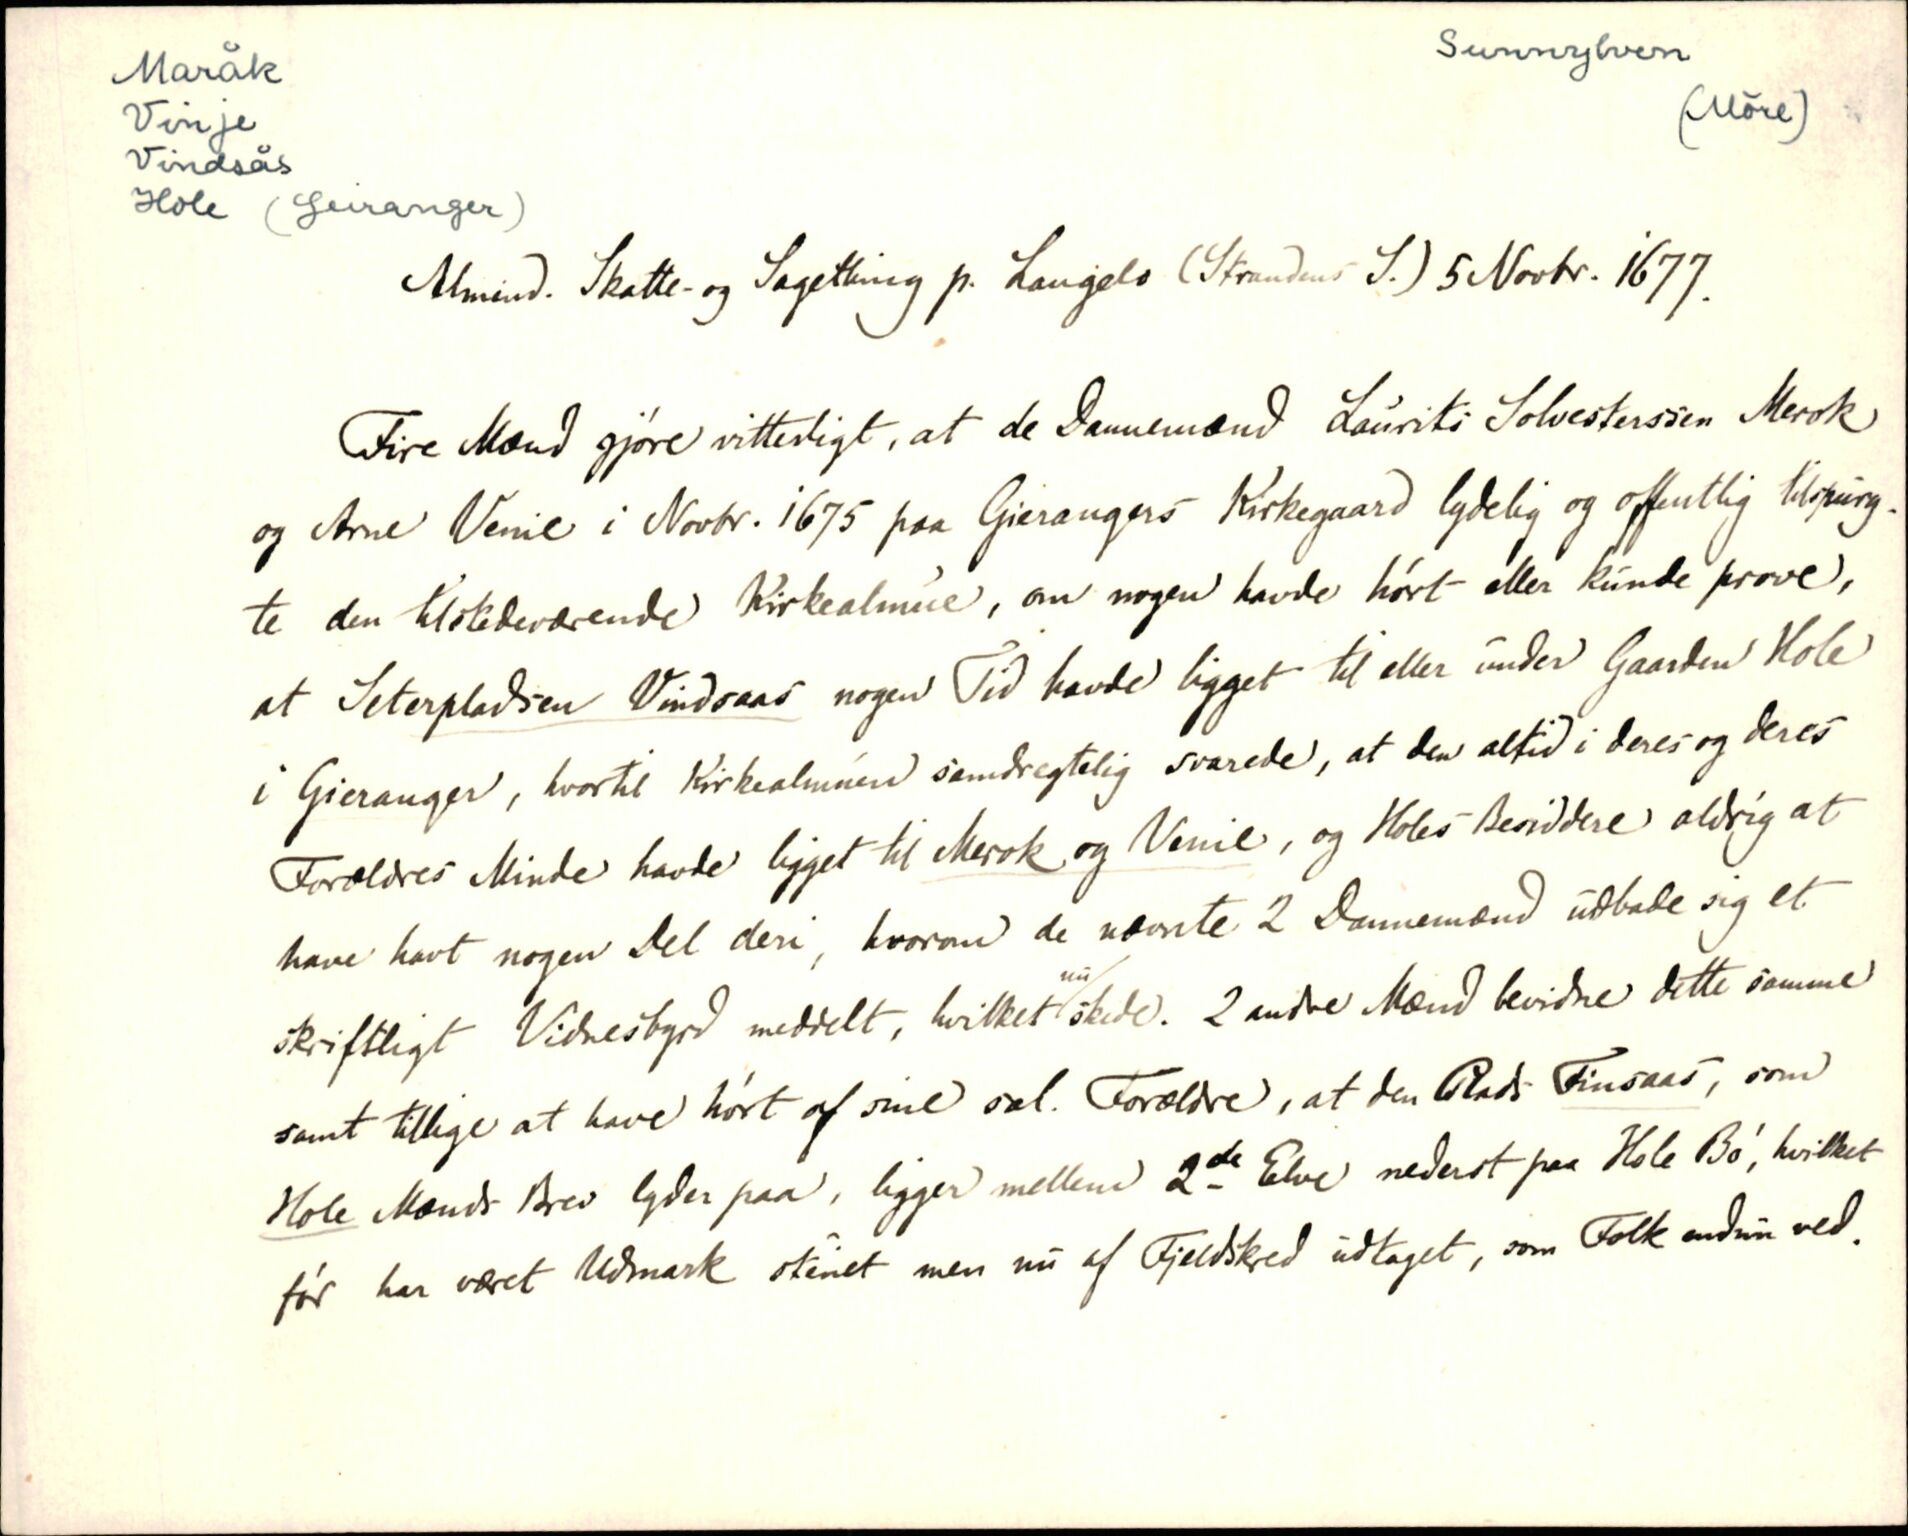 Maråk
Vinje
Vindsås
Hole (Geiranger)
Sunnylven
(Möre)
Almind. Skatte- og Sagething p. Langelo (Strandens S.) 5 Novbr. 1677.
Fire Mænd gjöre vitterligt, at de Dannemænd Laurits Solvesterssen Merok
og Arne Venie i Novbr. 1675 paa Gierangers Kirkegaard lydelig og offentlig tilspurg-
te den tilstedeværende Kirkealmue, om nogen havde hört eller kunde prove,
at Seterpladsen Vindsaas nogen Tid havde ligget til eller under Gaarden Hole
i Gieranger, hvortil Kirkealmuen samdregtelig svarede, at den altid i deres og deres
Forældres Minde havde ligget til Merok og Venie, og Holes Besiddere aldrig at
have havt nogen Del deri, hvorom de nævnte 2 Dannemænd udbade sig et
skriftligt Vidnesbyrd meddelt, hvilket nu skede. 2 andre Mænd bevidne dette samme
samt tillige at have hört af sine sal. Forældre, at den Plads Finsaas, som
Hole Mænds Brev lyder paa, ligger mellem 2de Elve nederst paa Hole Bö, hvilket
för har været Udmark stenet men nu af Fjeldskred udtaget, som Folk endnu ved.